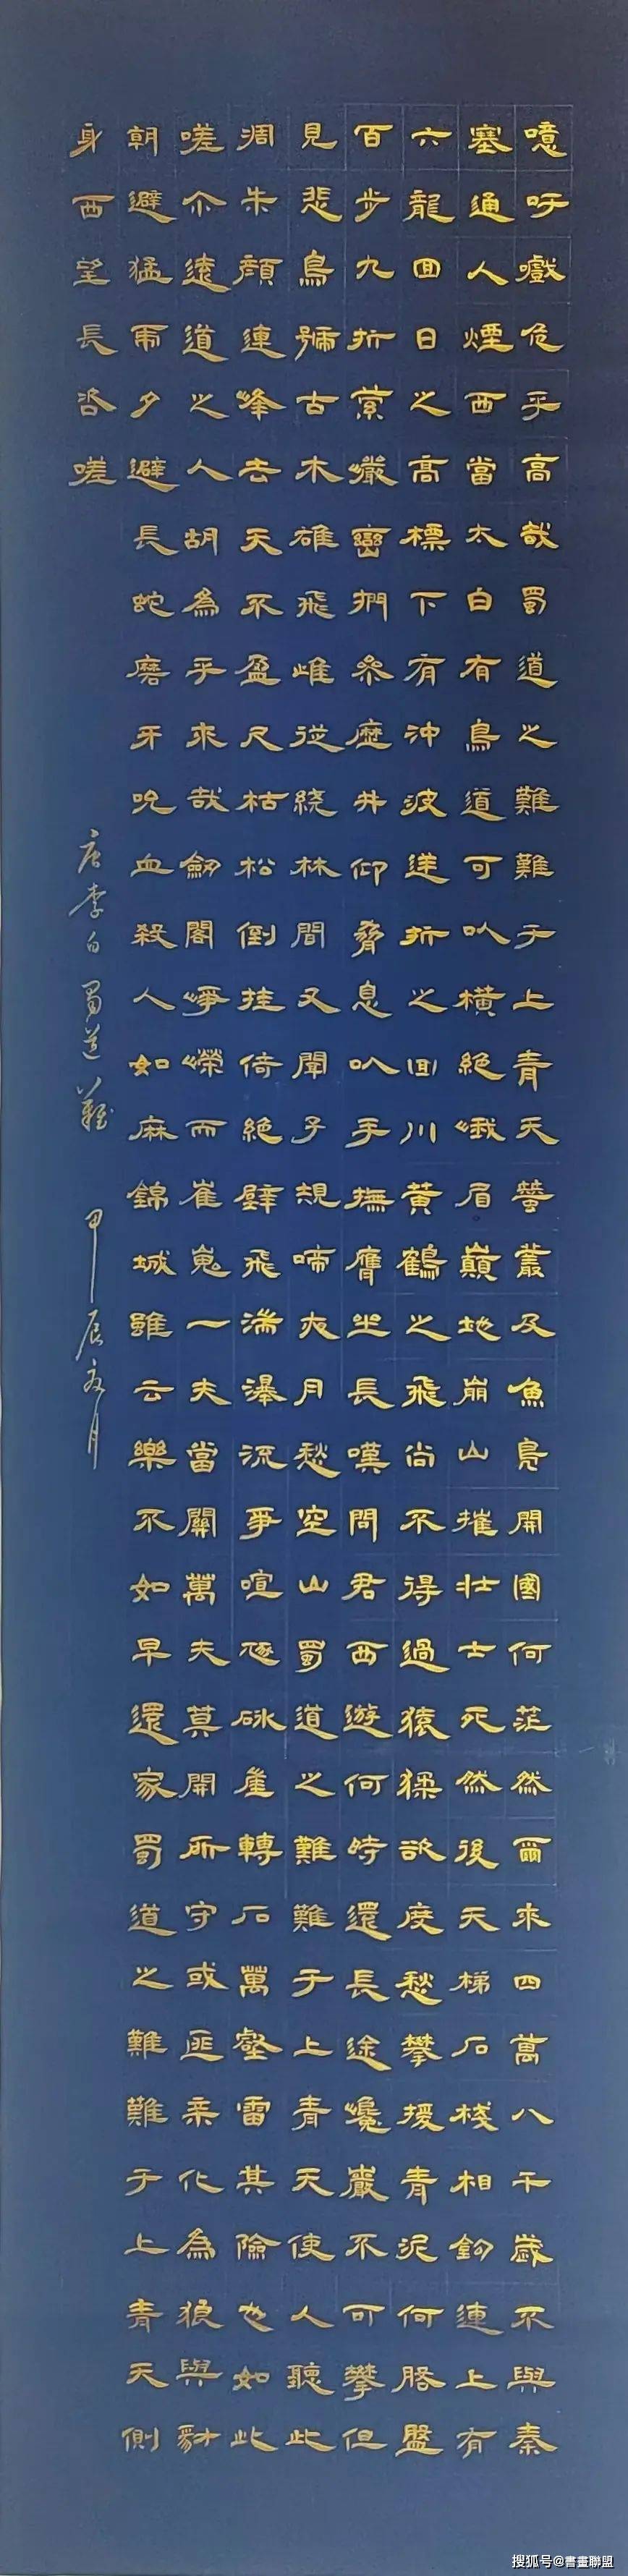 噫吁戲危乎高哉蜀道之難難于上青天蠶叢及魚鳧開國何茫然爾來四萬八千歲不與秦
塞通人煙西當太白有鳥道可以橫絕峨眉巔地崩山摧壯士死然後天梯石棧相鉤連上有
六龍回日之高標下有沖波逆折之回川黃鶴之飛尚不得過猿猱欲度愁攀援青泥何盤盤
百步九折縈巖巒捫參歷井仰脅息以手撫膺坐長嘆問君西遊何時還長途巉巖不可攀但
見悲鳥號古木雄飛雌從繞林間又聞子規啼夜月愁空山蜀道之難難于上青天使人聽此
凋朱顏連峰去天不盈尺枯松倒挂倚絕壁飛湍瀑流爭喧豗砯崖轉石萬壑雷其險也如此
嗟尒遠道之人胡為乎來哉劍閣崢嶸而崔嵬一夫當關萬夫莫開所守或匪親化為狼與豺
朝避猛虎夕避長蛇磨牙吮血殺人如麻錦城雖云樂不如早還家蜀道之難難于上青天側
身西望長咨嗟
唐李白蜀道難 甲辰夏月
搜狐号@書畫聯盟